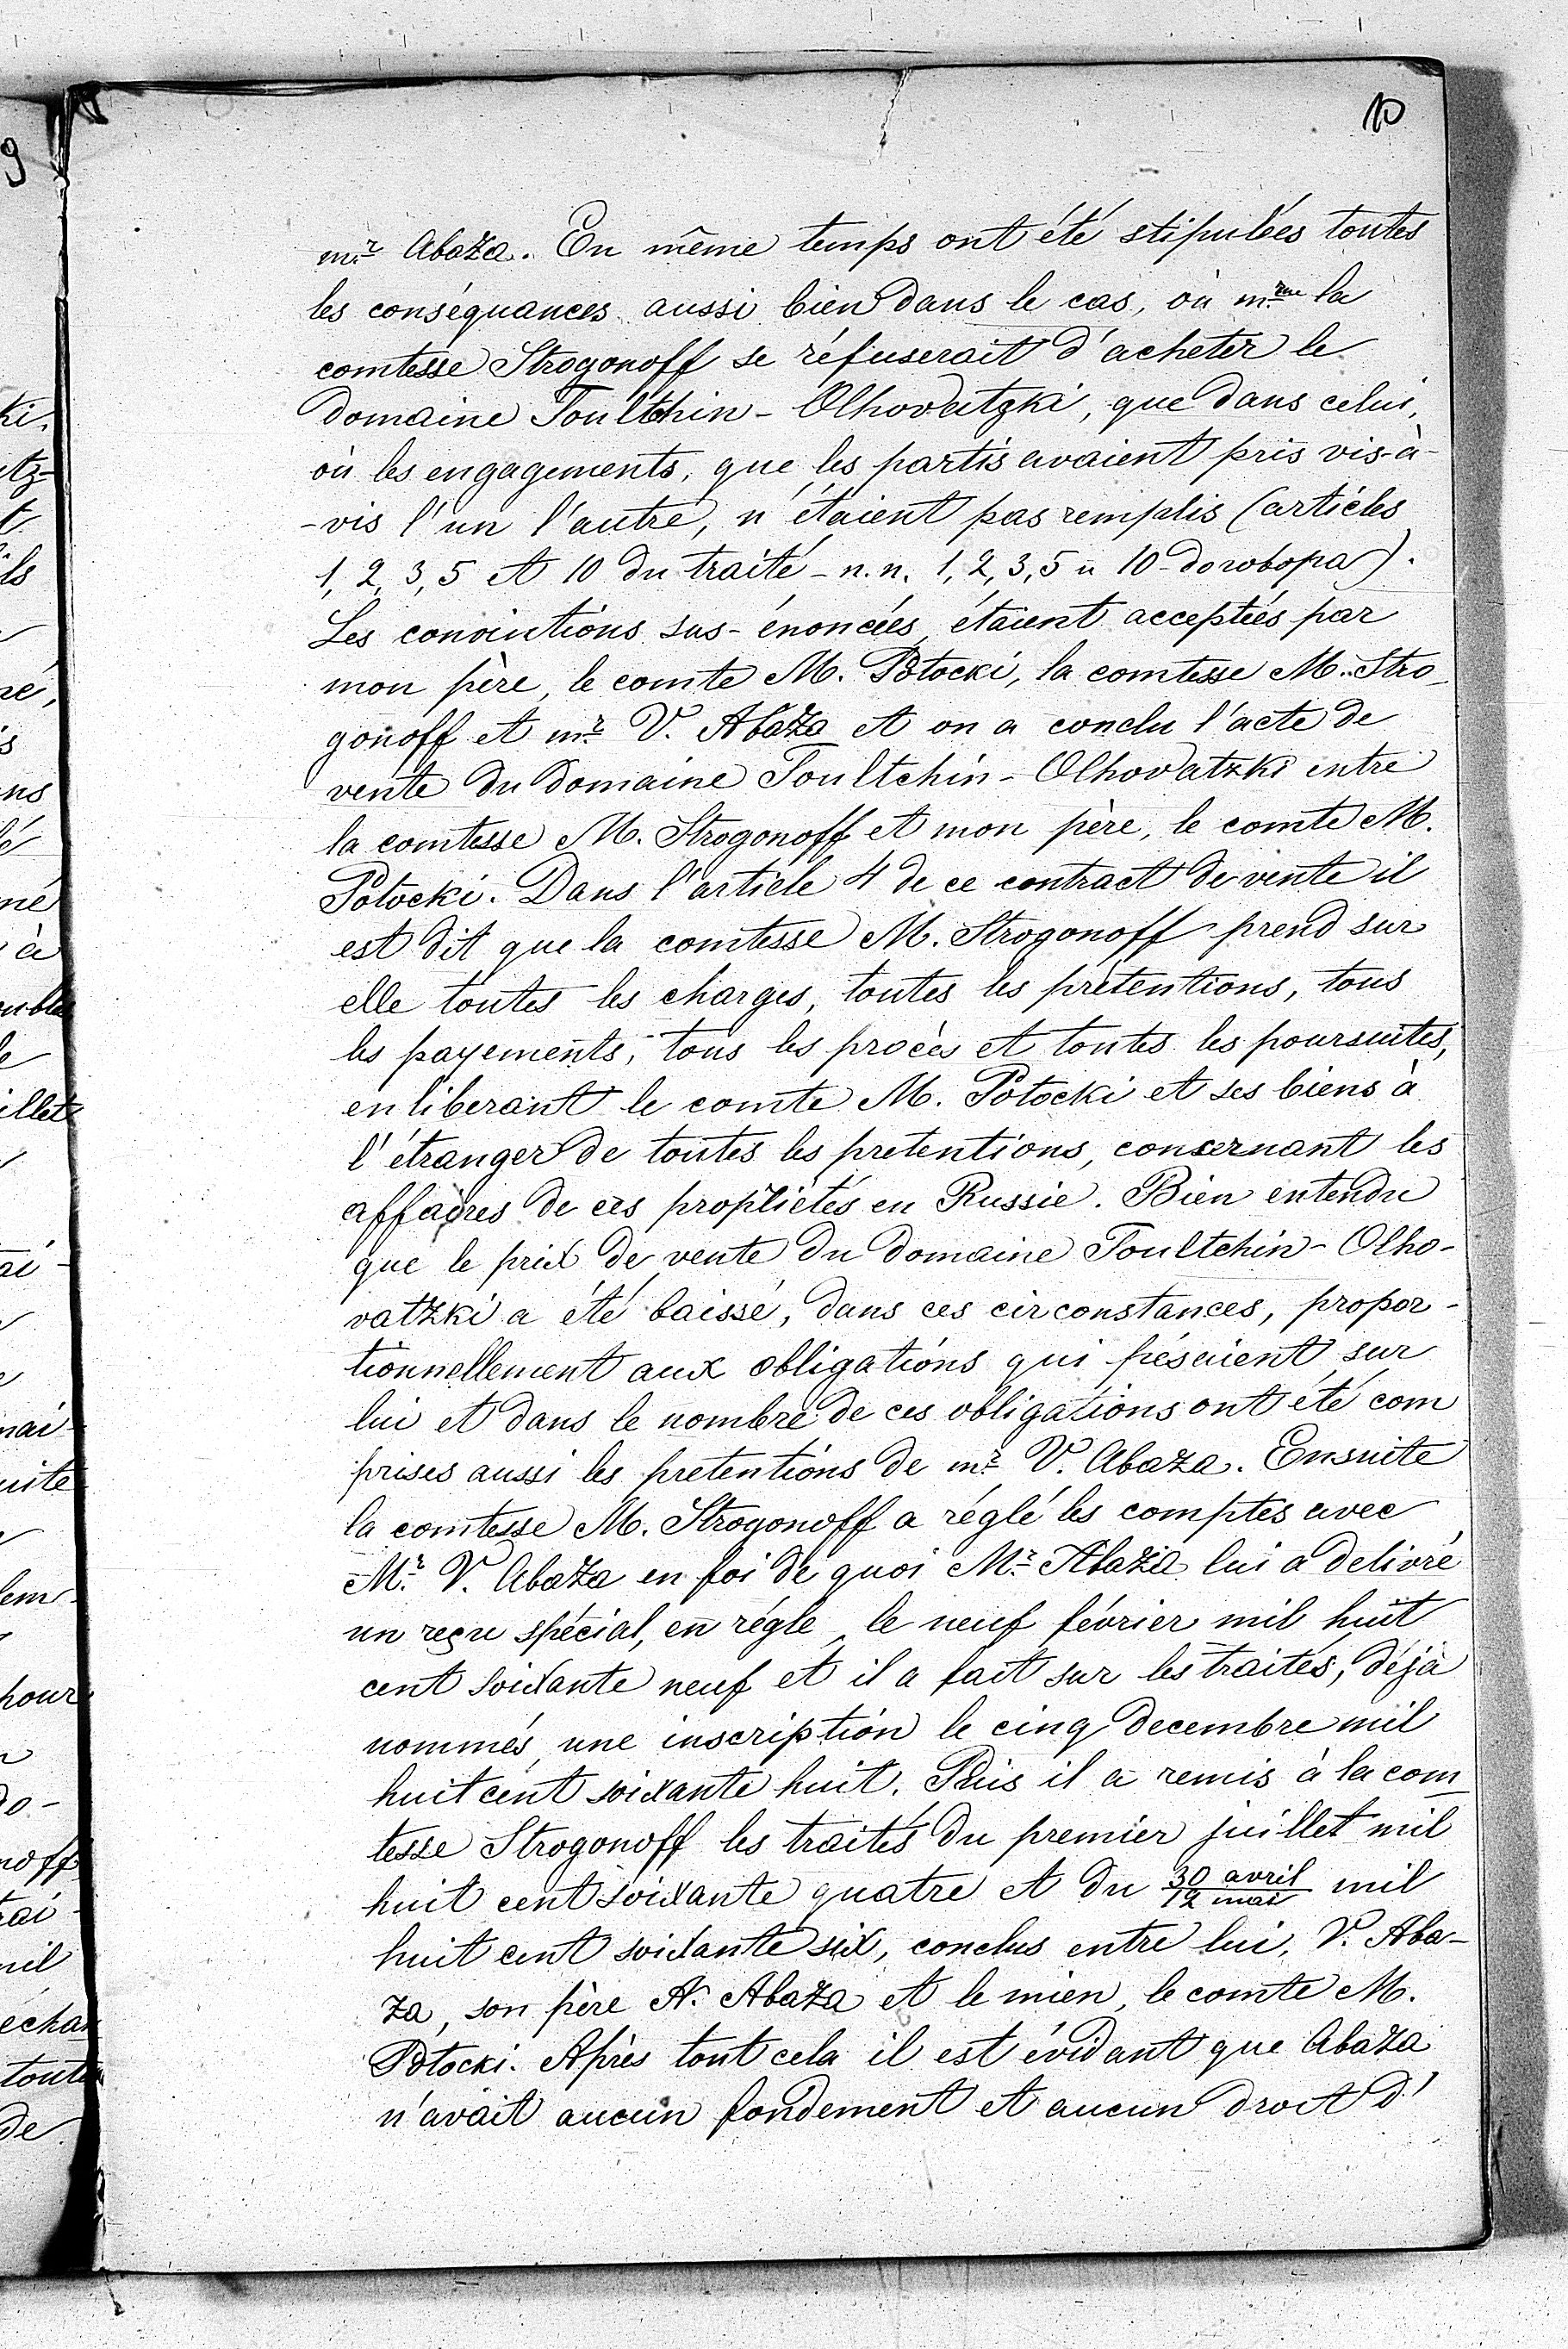 10
m.r Abaza. En même temps ont été stipulées toutes
les conséquances aussi bien dans le cas, où m.me la
comtesse Strogonoff se réfuserait d'acheter le
domaine Toultchin - Olhovatzki, que dans celui,
où les engagements, que les partis avaient pris vis-à-
-vis l'un l'autre, n'étaient pas remplis (articles
1, 2, 3, 5 et 10 du traité - n.n. 1, 2, 3, 5 и 10 договора).
Les conventions sus-énoncées, étaient acceptées par
mon père, le comte M. Potocki, la comtesse M. Stro-
gonoff et m.r V. Abaza et on a conclu l'acte de
vente du domaine Toultchin - Olhovatzki entre
la comtesse M. Strogonoff et mon père, le comte M.
Potocki. Dans l'article 4 de ce contract de vente il
est dit que la comtesse M. Strogonoff prend sur
elle toutes les charges, toutes les prétentions, tous
les payements, tous les procès et toutes les poursuites,
en liberant le comte M. Potocki et ses biens à
l'étranger de toutes les pretentions, concernant les
affaires de ces propriétés en Russie. Bien entendu
que le prix de vente du domaine Toultchin - Olho-
vatzki a été baissé, dans ces circonstances, propor-
tionnellement aux obligations qui pésaient sur
lui et dans le nombre de ces obligations ont été com
prises aussi les pretentions de m.r V. Abaza. Ensuite
la comtesse M. Strogonoff a réglé les comptes avec
M.r V. Abaza en foi de quoi M.r Abaza lui a delivré
un reçu spécial, en régle, le neuf février mil huit
cent soixante neuf et il a fait sur les traités, déjà
nommés, une inscription le cinq decembre mil
huit cent soixante huit. Puis il a remis à la com-
tesse Strogonoff les traités du premier juillet mil
huit cent soixante quatre et du 30 avril/12 mai mil
huit cent soixante six, conclus entre lui, V. Aba-
za, son père A. Abaza et le mien, le comte M.
Potocki. Après tout cela il est évidant que Abaza
n'avait aucun fondement et aucun droit d'